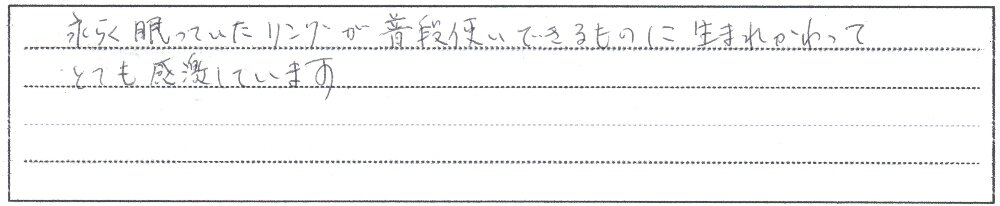 永らく眠っていたリングが普段使いできるものに生まれかわって
とても感激しています